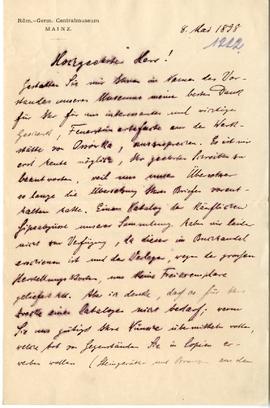 Röm.-Germ. Centralmuseum
MAINZ.
8. Mai 1898
1222
Hochgeehrter Herr!
Gestatten Sie mir Ihnen im Namen des Vor-
standes unseres Museums meinen besten Dank
für Ihr für uns interessantes und wichtiges
Geschenk, Feuersteinartefacte aus der Werk-
stätte von, auszusprechen. Es ist mir
erst heute möglich, Ihr geehrtes Schreiben zu
beantworten, weil uns unser Übersetzer
so lange die Übersetzung Ihres Briefes vorent-
halten hatte. Einen Katalog der käuflichen
Gipsabgüsse unserer Sammlung haben wir leider
nicht zur Verfügung, da dieser im Buchhandel
erschienen ist und der Verleger, wegen der großen
Herstellungskosten, uns keine Freiexemplare
geliefert hat. Aber ich denke, daß es für Ihre
Zwecke eines Kataloges nicht bedarf, wenn
Sie uns gütigst Ihre Wünsche übermitteln wollen,
welche Art von Gegenständen Sie in Copien er-
werben wollen (Steingeräte und Bronzen aus den